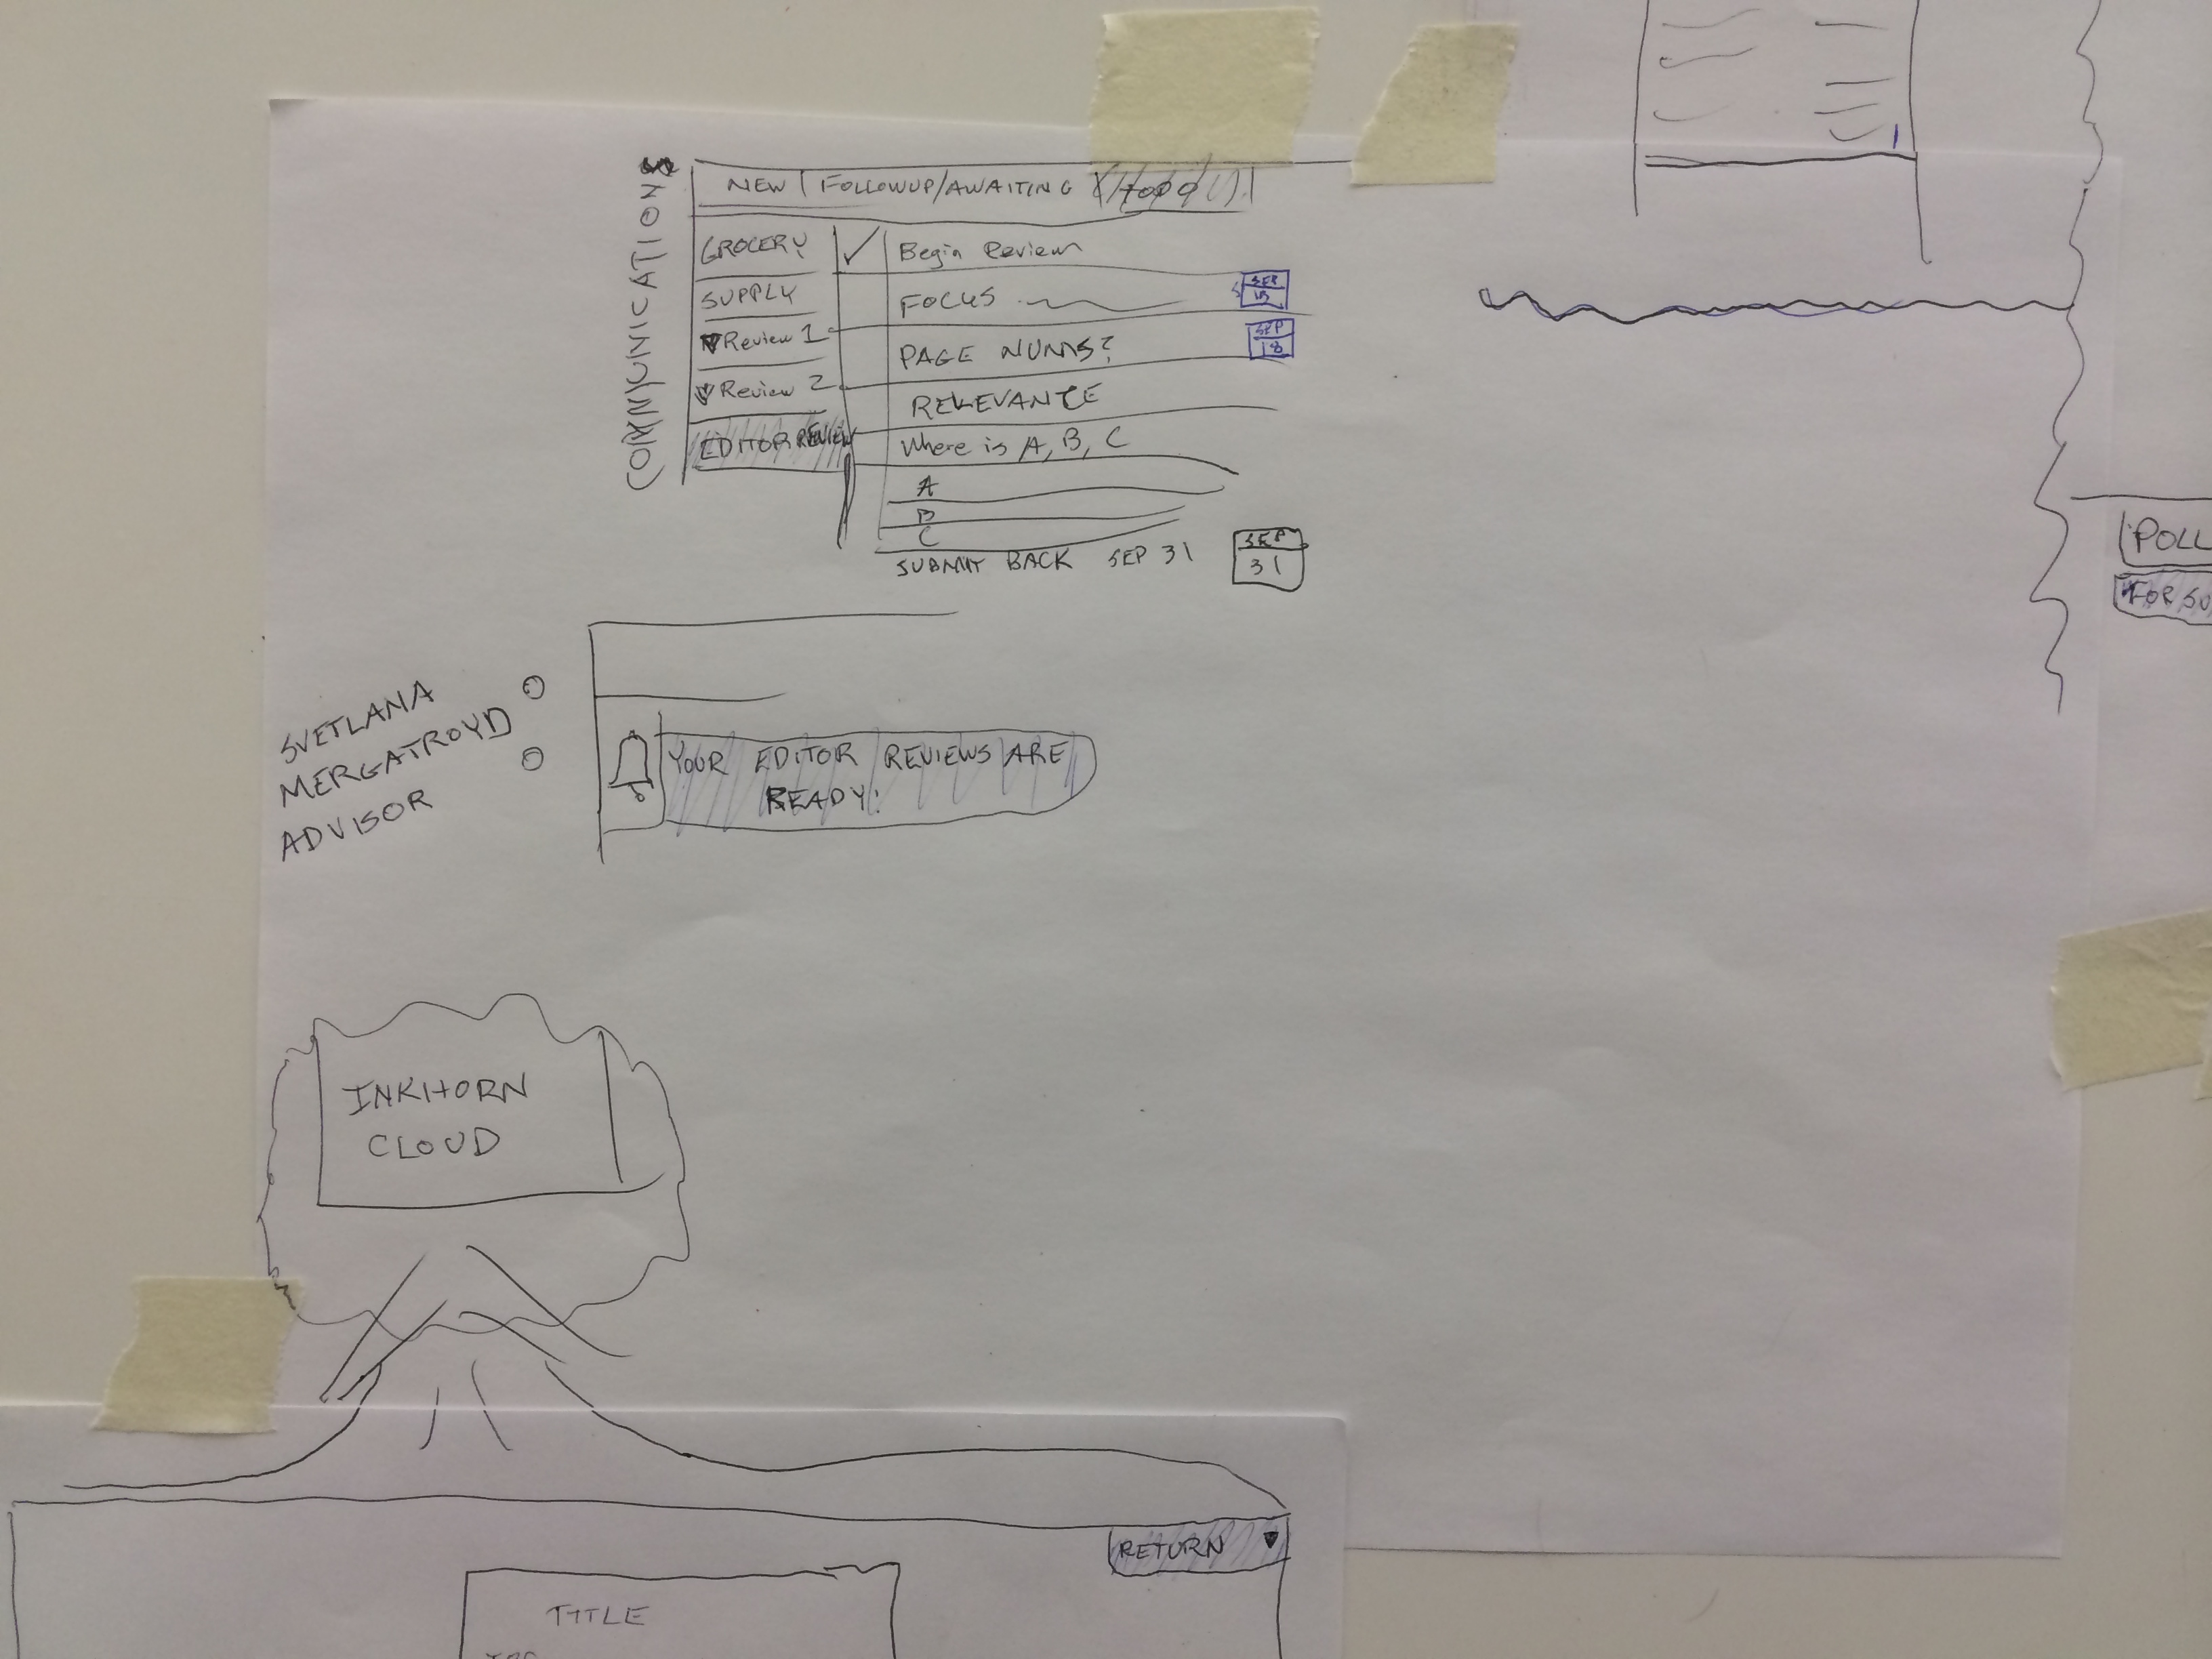 COMMUNICATIONS
NEW FOLLOWUP/AWAITING TODO
GROCERY
SUPPLY
Review 1
Review 2
EDITOR REVIEW
✓ Begin Review
FOCUS
SEP
PAGE NUMS?
SEP
18
RELEVANCE
Where is A, B, C
A
B
C
SUBMIT BACK SEP 31
SEP
31
SVETLANA
MERGATROYD
ADVISOR
YOUR EDITOR REVIEWS ARE
READY!
INKHORN
CLOUD
RETURN
TITLE
POLL
FOR SU